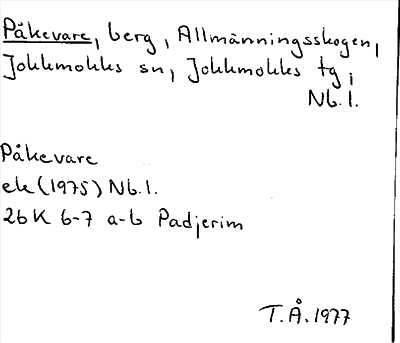 Påkevare, berg, Allmänningsskogen,
Jokkmokks sn, Jokkmokks tg,
Nb.l.
Påkevare
ek (1975) Nb.l.
26K 6-7 a-b Padjerim
T.Å.1977